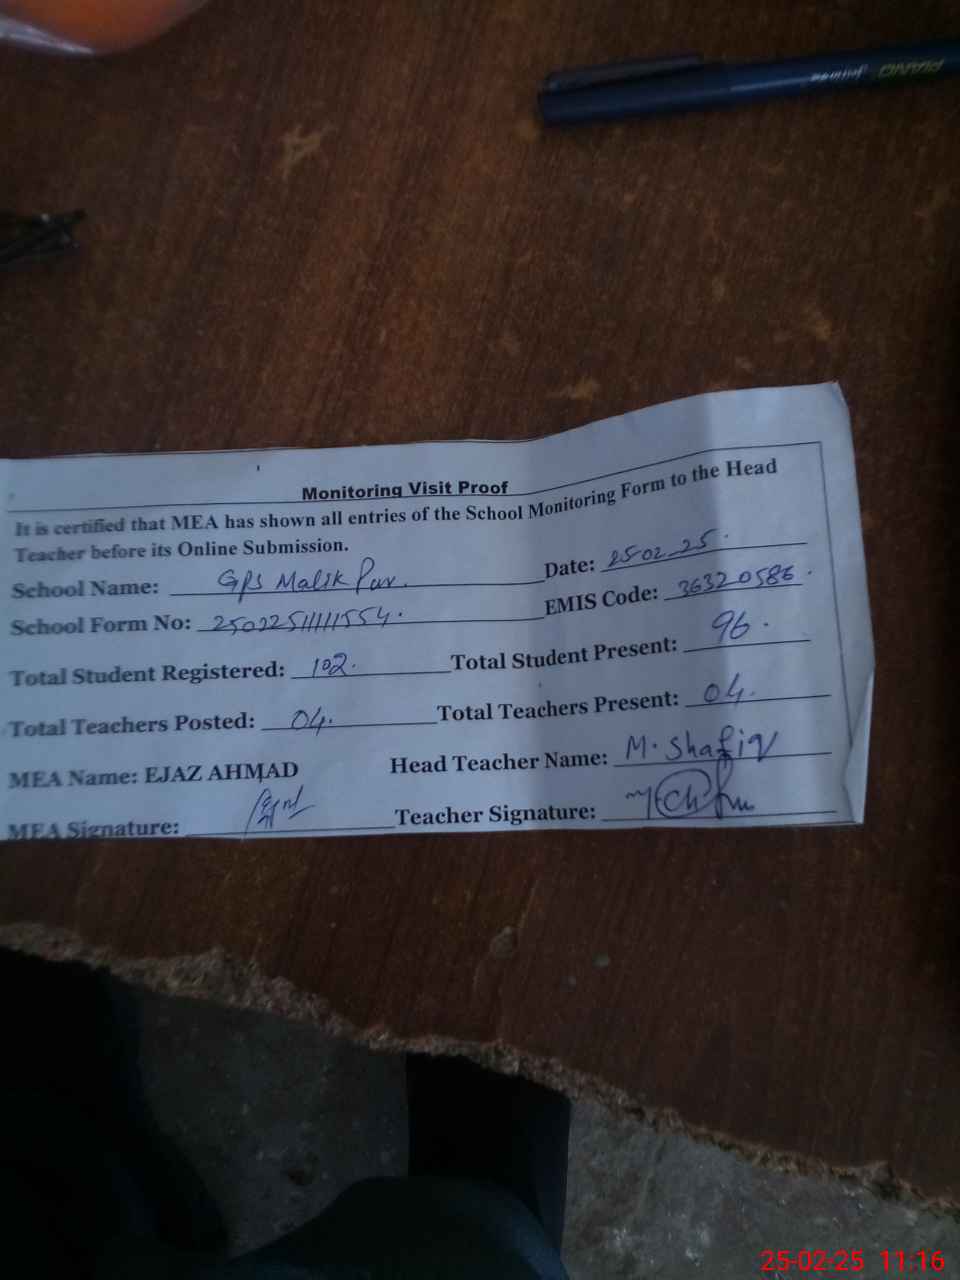 PIANO
Monitoring Visit Proof
It is certified that MEA has shown all entries of the School Monitoring Form to the Head
Teacher before its Online Submission.
School Name: GPS Malik Pur. Date: 25-02-25.
School Form No: 25022511111554. EMIS Code: 36320586.
Total Student Registered: 102. Total Student Present: 96.
Total Teachers Posted: 04. Total Teachers Present: 04.
MEA Name: EJAZ AHMAD Head Teacher Name: M. Shafiq
MEA Signature: Teacher Signature:
25-02-25 11:16